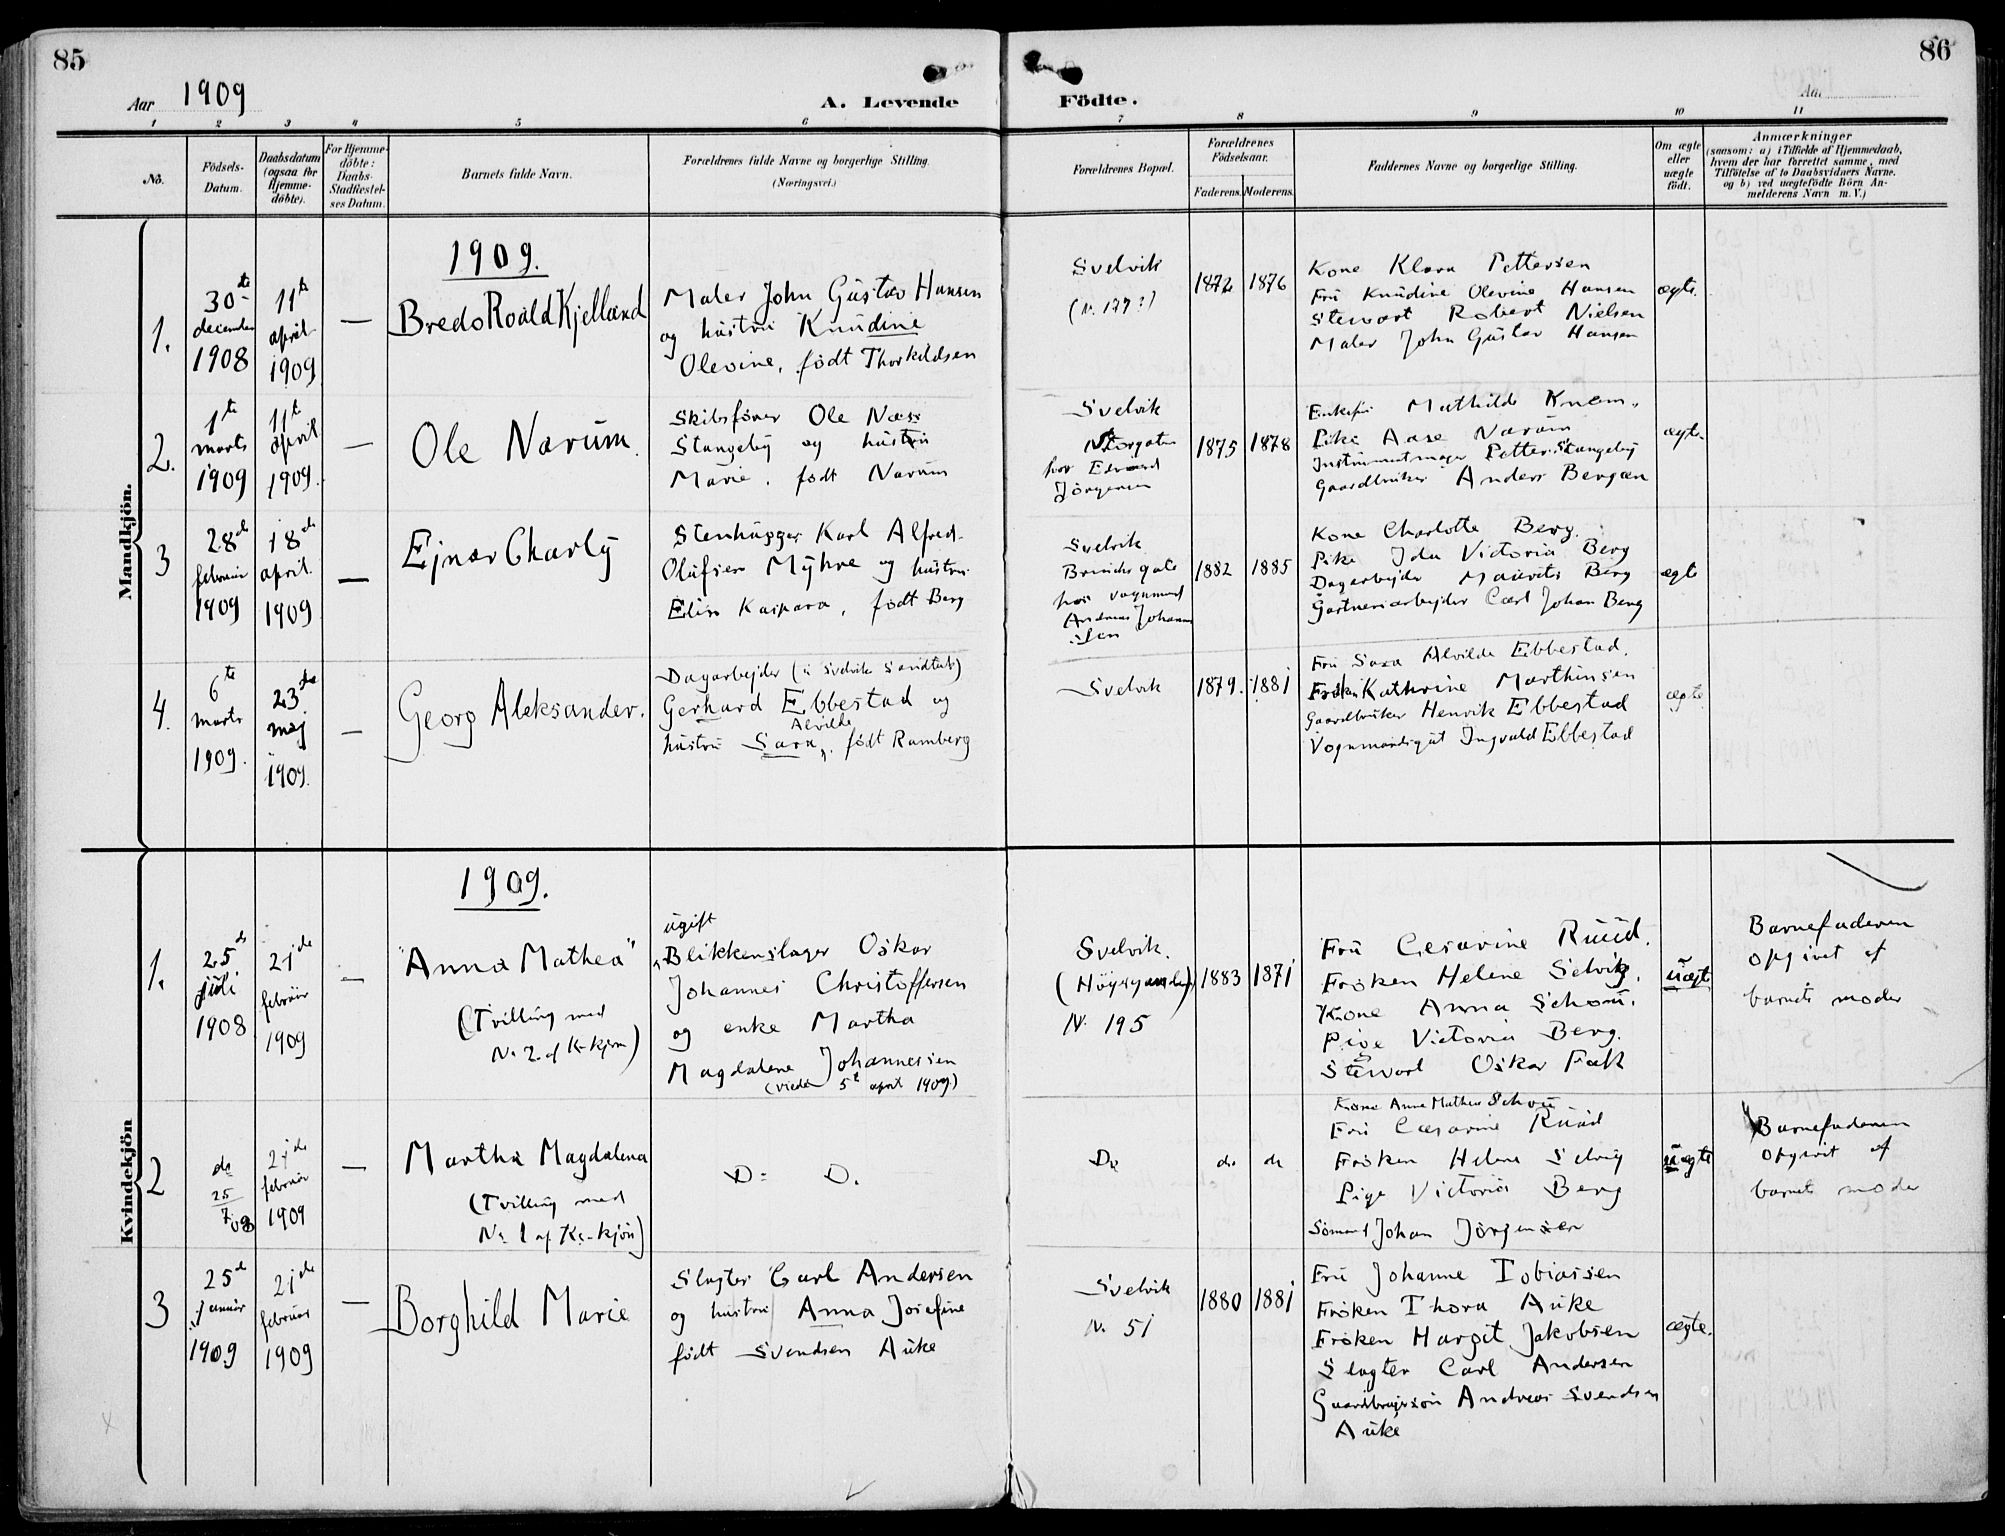 85
86
Aar 1909
A. Levende Födte.
Aar
1 2 3 4 5 6 7 8 9 10 11
No.
Födsels-Datum.
Daabsdatum (ogsaa for Hjemme-döbte).
For Hjemme-döbte: Daabs-Stadfæstel-ses Datum.
Barnets fulde Navn.
Forældrenes fulde Navne og borgerlige Stilling.
(Næringsvei.)
Forældrenes Bopæl.
Forældrenes Födselsaar.
Faderens. Moderens.
Faddernes Navne og borgerlige Stilling.
Om ægte eller uægte födt.
Anmærkninger
(saasom: a) i Tilfælde af Hjemmedaab,
hvem der har forrettet samme, med
Tilföielse af to Daabsvidners Navne.
og b) ved uægtefödte Börn An-
melderens Navn m. V.)
Mandkjön.
1909.
1.
30te
december
1908
11te
april
1909
—
Bredo Roald Kjelland
Maler John Gustav Hansen
og hustru Knudine
Olevine, født Thorkildsen
Svelvik
(N. 177?)
1872
1876
Kone Klara Pettersen
Fru Knudine Olevine Hansen
Stewart Robert Nielsen
Maler John Gustav Hansen
ægte.
2.
1te
marts
1909
11te
april
1909.
—
Ole Narum.
Skibsfører Ole Næss
Stangeby og hustru
Marie, født Narum
Svelvik
Storgaten
hos Edvard
Jörgensen
1875
1878
Enkefru Mathilde Knem.
Pike Aase Narum
Instrumentmager Petter Stangeby
Gaardbruker Anders Bergan
ægte.
3
28de
februar
1909
18de
april.
1909
—
Ejnar Charly
Stenhugger Karl Alfred
Olufsen Myhre og hustru
Elise Kaspara, født Berg
Svelvik
gate
hos vognmand
Andreas Johann
sen
1882
1885
Kone Charlotte Berg.
Pike Ida Victoria Berg
Dagarbejder Mauritz Berg
Gartneriarbejder Carl Johan Berg
ægte
4.
6te
marts
1909.
23de
maj
1909.
—
Georg Aleksander.
Dagarbejder (i Svelvik Sandtak)
Gerhard Ebbestad og
Alvilde
hustru Sara, født Ramberg
Svelvik
1879.
1881
Fru Sara Alvilde Ebbestad.
Frøken Kathrine Marthinsen
Gaardbruker Henrik Ebbestad
Vognmandsgut Ingvald Ebbestad
ægte
Kvindekjön
1909.
1.
25de
juli
1908
21de
februar
1909
—
"Anna Mathea"
(Tvilling med
No 2. af K-kjøn)
ugift
Blikkenslager Oskar
Johannes Christoffersen
og enke Martha
Magdalene Johannessen
(viede 5te april 1909)
Svelvik.
N. 195
1883
1871
Fru Cesarine Ruud.
Frøken Helene Selvig.
Kone Anna Schou.
Pige Victoria Berg.
Stewart Oskar Falk
uægte
Barnefaderen
opgivet af
barnets moder
2
do
25/7 08
21de
februar
1909
—
Martha Magdalena
(Tvilling med
No 1 af Kv-kjøn)
Do Do.
Do
do
do
Kone Anna Mathea Schou
Fru Cæsarine Ruud
Frøken Helene Selvig
Pige Victoria Berg
Sømand Johan Jørgensen
uægte
Barnefaderen
opgivet af
barnets moder
3
25de
januar
1909
21de
februar
1909
—
Borghild Marie
Slagter Carl Andersen
og hustru Anna Josefine
født Svendsen Auke
Svelvik
N. 51
1880
1881
Fru Johanne Tobiassen
Frøken Thora Auke
Frøken Margit Jakobsen
Slagter Carl Andersen
Gaardbrugersøn Andreas Svendsen
Auke
ægte.